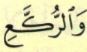 وَالرُّكَّعِ